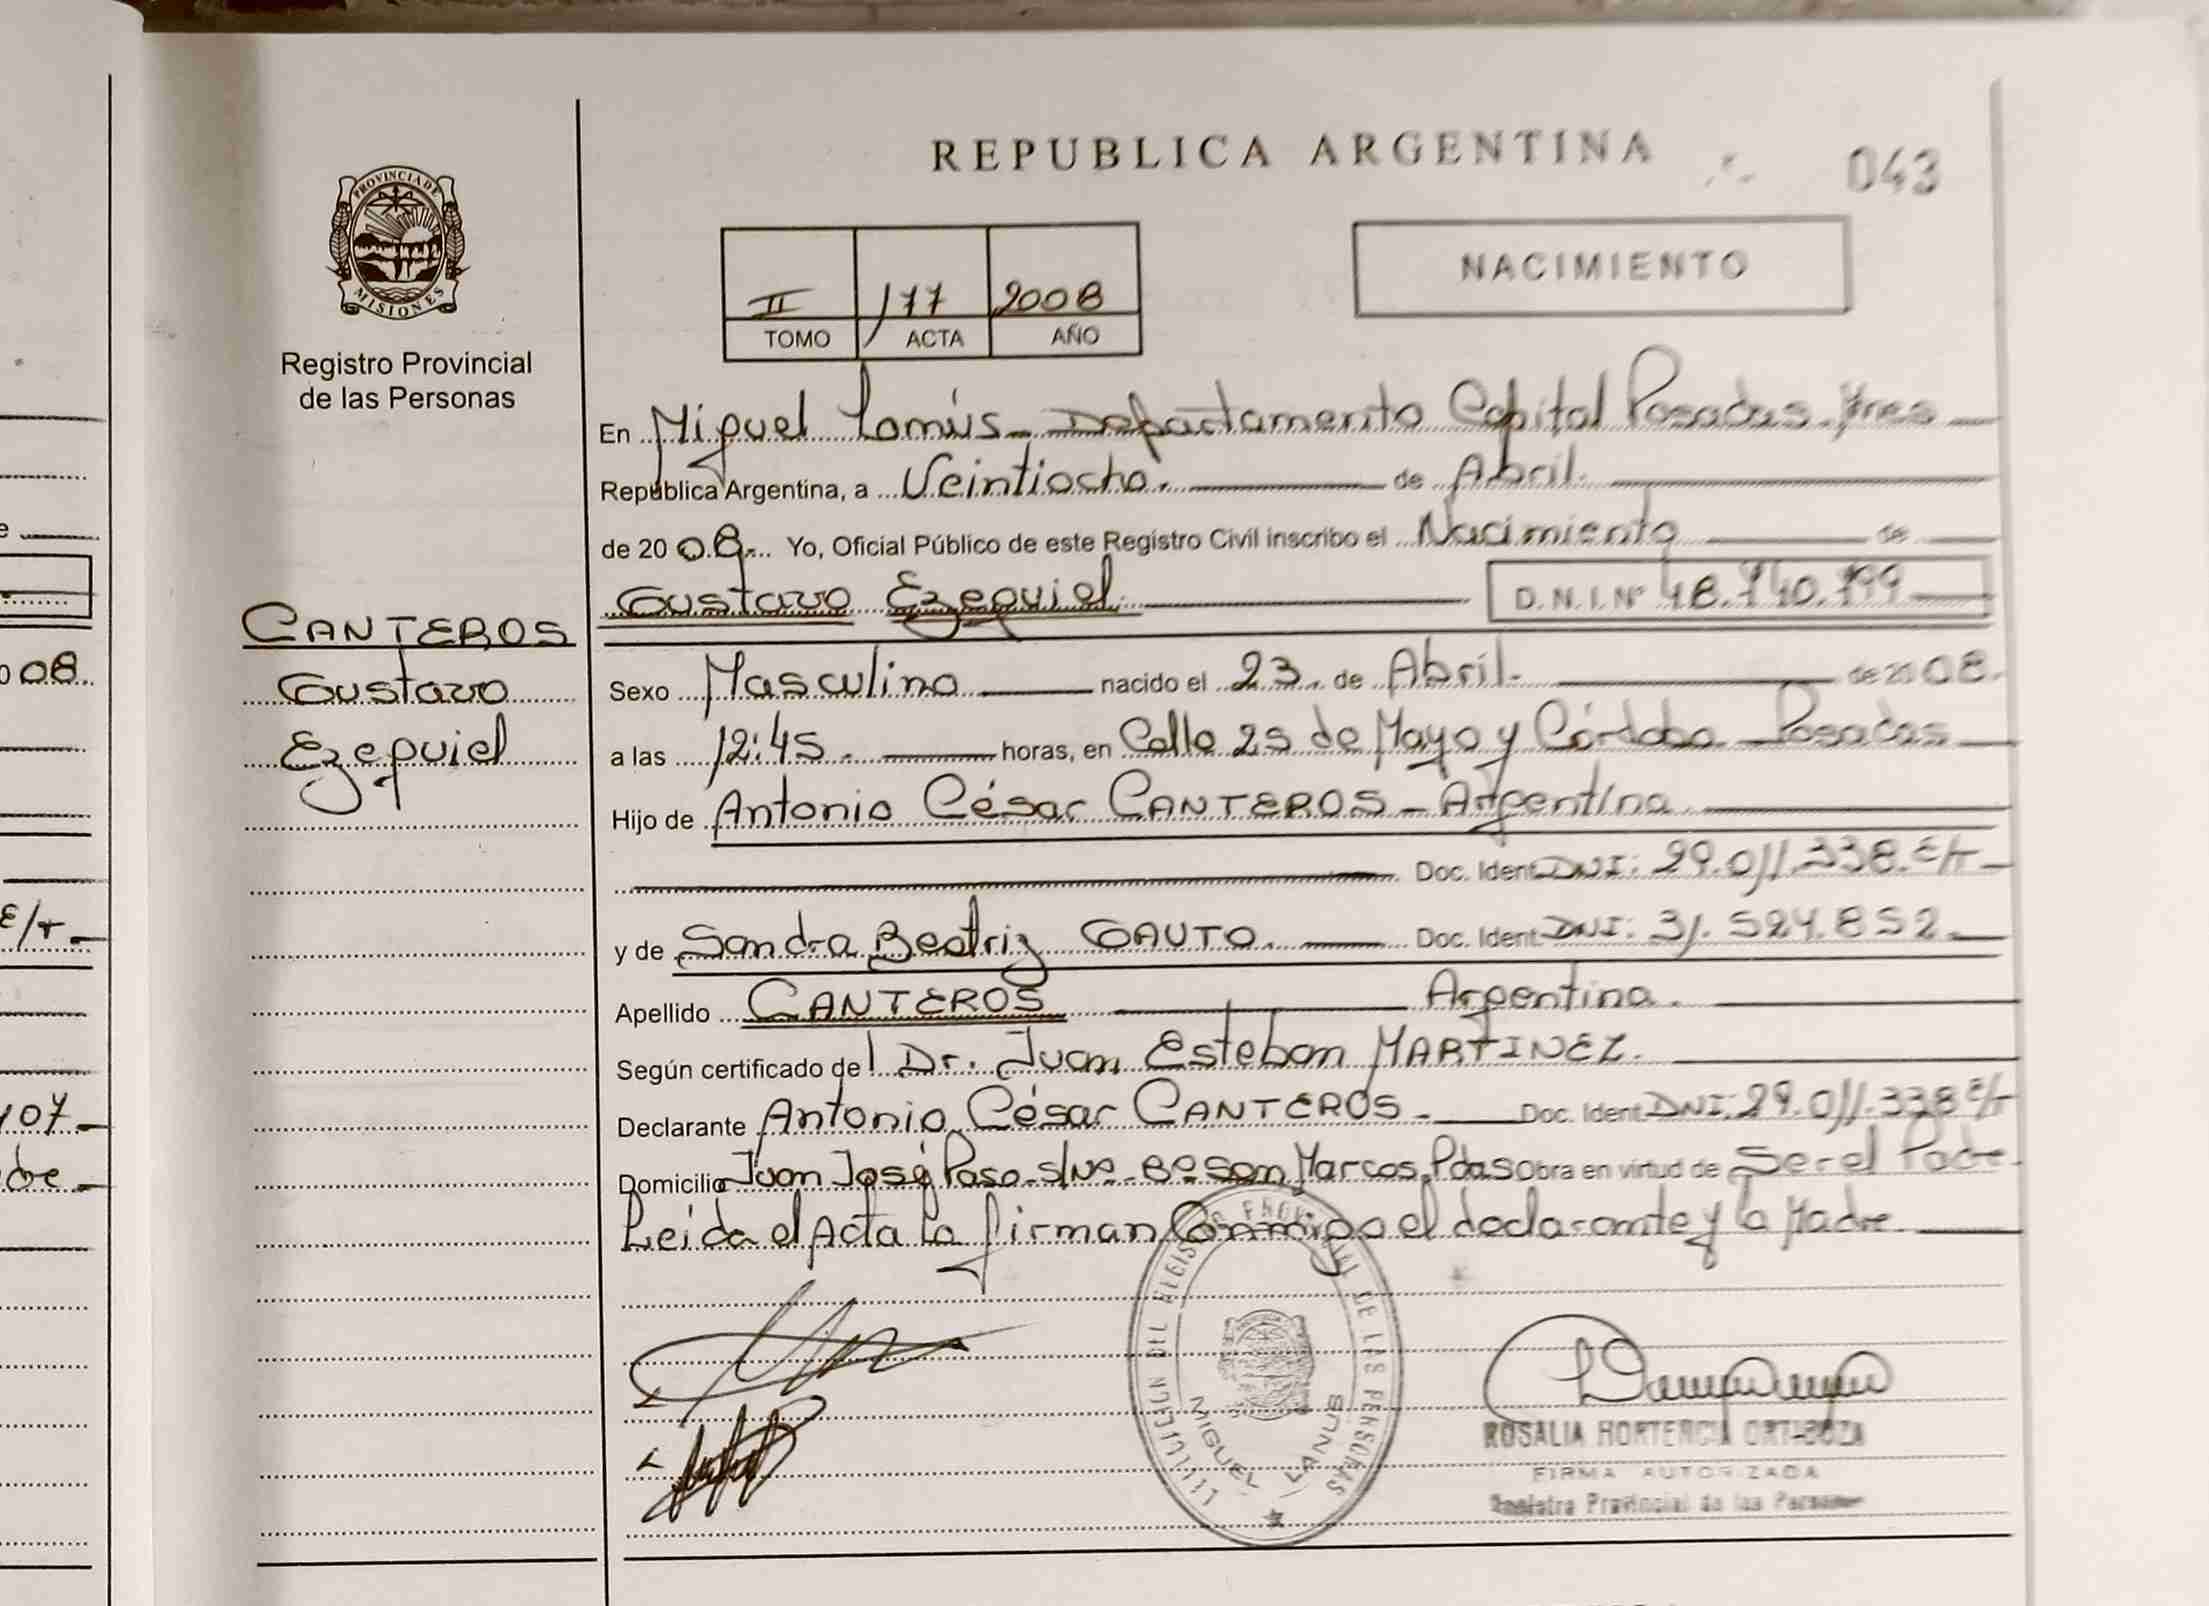 REPUBLICA ARGENTINA
043
PROVINCIA DE
MISIONES
Registro Provincial
de las Personas
II 177 2008
TOMO ACTA AÑO
NACIMIENTO
En Miguel Lanús - Departamento Capital Posadas. Mnes
República Argentina, a Veintiocho. de Abril.
de 2008. Yo, Oficial Público de este Registro Civil inscribo el Nacimiento de
Gustavo Ezequiel. D.N.I. Nº 48.740.799
CANTEROS
Gustavo
Ezequiel
Sexo Masculino nacido el 23. de Abril. de 2008.
a las 12:45. horas, en Calle 25 de Mayo y Córdoba Posadas
Hijo de Antonio César CANTEROS - Argentina
Doc. Ident DNI: 29.011.338. E/T
y de Sandra Beatriz GAUTO. Doc. Ident. DNI: 31.524.852.
Apellido CANTEROS Argentina.
Según certificado de Dr. Juan Esteban MARTINEZ.
Declarante Antonio César CANTEROS. Doc. Ident. DNI: 29.011.338 E/T
Domicilio Juan José Paso - S/Nº - Bº San Marcos. Pdas Obra en virtud de Ser el Padre
Leida el Acta la firman Conmigo el declarante y la Madre
PROVINCIAL DE LAS PERSONAS
MIGUEL LANUS
ROSALIA HORTENCIA
FIRMA AUTORIZADA
Registro Provincial de las Personas
08
E/T
107